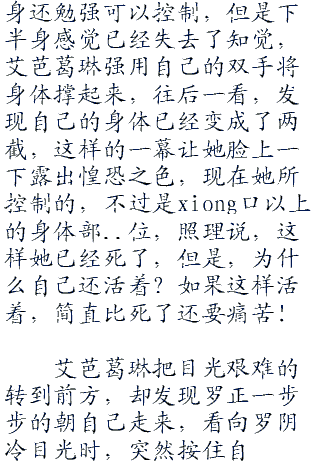 身还勉强可以控制，但是下
半身感觉已经失去了知觉，
艾芭葛琳强用自己的双手将
身体撑起来，往后一看，发
现自己的身体已经变成了两
截，这样的一幕让她脸上一
下露出惶恐之色，现在她所
控制的，不过是xiong口以上
的身体部..位，照理说，这
样她已经死了，但是，为什
么自己还活着？如果这样活
着，简直比死了还要痛苦！
艾芭葛琳把目光艰难的
转到前方，却发现罗正一步
步的朝自己走来，看向罗阴
冷目光时，突然按住自